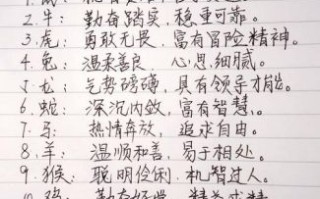 2.牛：勤奋踏实，稳重可靠。
3.虎：勇敢无畏，富有冒险精神。
4.兔：温柔善良，心思细腻。
5.龙：气势磅礴，具有领导才能。
6.蛇：深沉内敛，富有智慧。
7.马：热情奔放，追求自由。
8.羊：温顺和善，易于相处。
9.猴：聪明伶俐，机智过人。